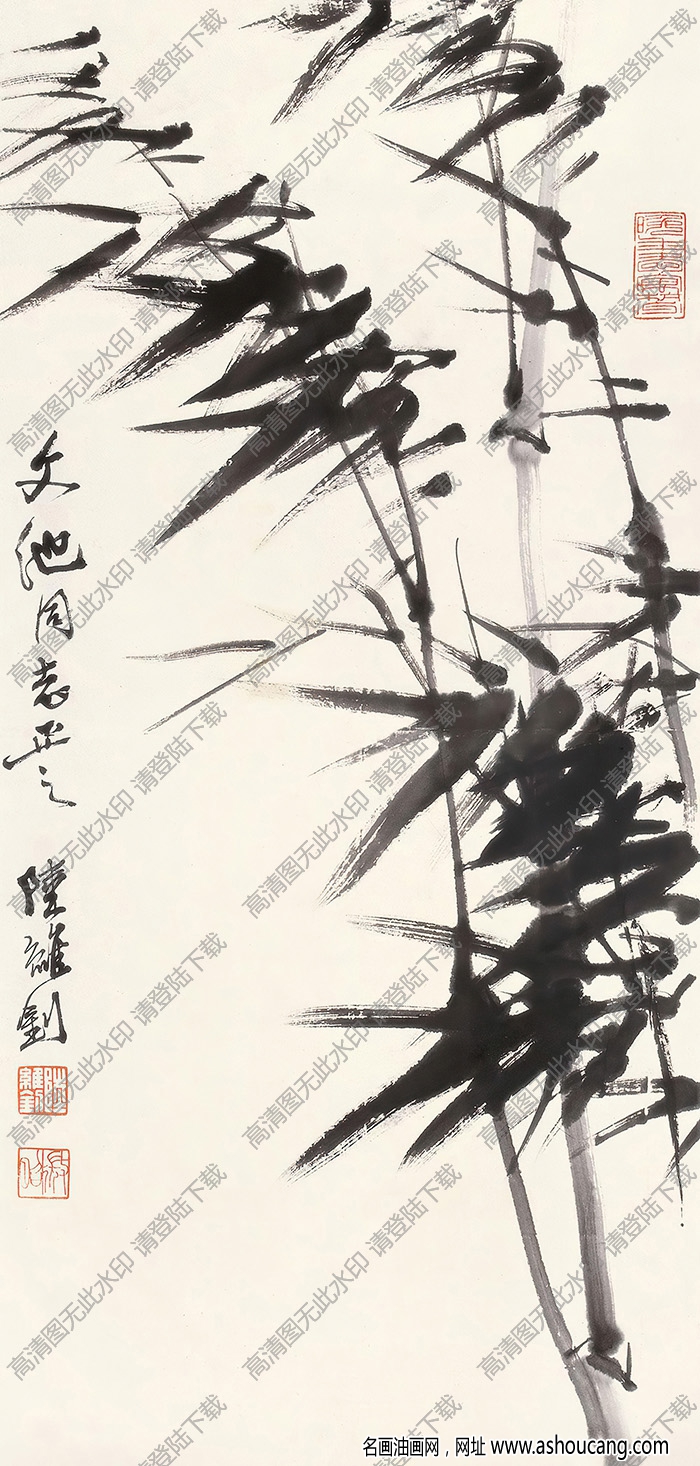 文池同志正之
陸維釗
高清图无此水印 请登陆下载
名画油画网，网址 www.ashoucang.com